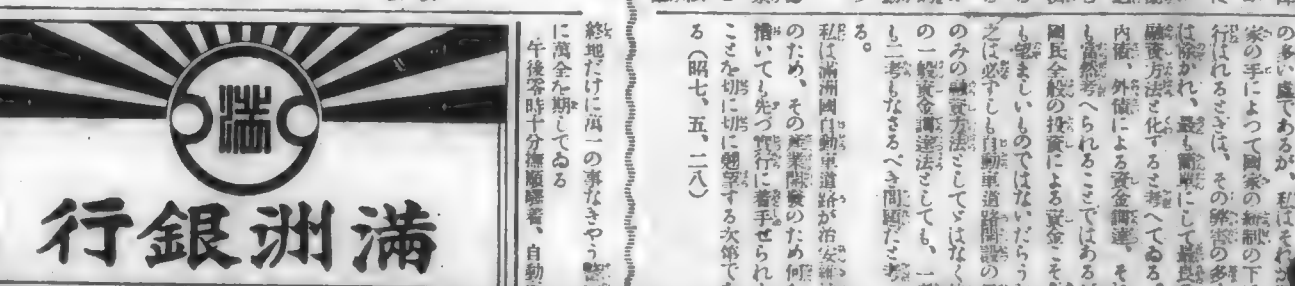 の多い處であるが、私はそれが
家の手によつて國家の統制の下
行はれるときは、その弊害の多
は除かれ、最も簡單にして最良
融資方法と化すると考へてゐる
内債、外債による資金調達、そ
も當然考へられることではある
國民全般の投資による資金こそ
も望ましいものではないだらう
之は必ずしも自動車道路開設の
のみの融資方法としてゞはなく
の一般資金調達法としても、一
も二考もなさるべき問題だと考
る。
私は滿洲國自動車道路が治安維
のため、その産業開發のため何
措いても先づ實行に着手せられ
ことを切に切に翹望する次第で
る（昭七、五、二八）
終地だけに萬一の事なきやう警
に萬全を期してゐる
午後零時十分撫順驛着、自動
滿
行銀洲滿